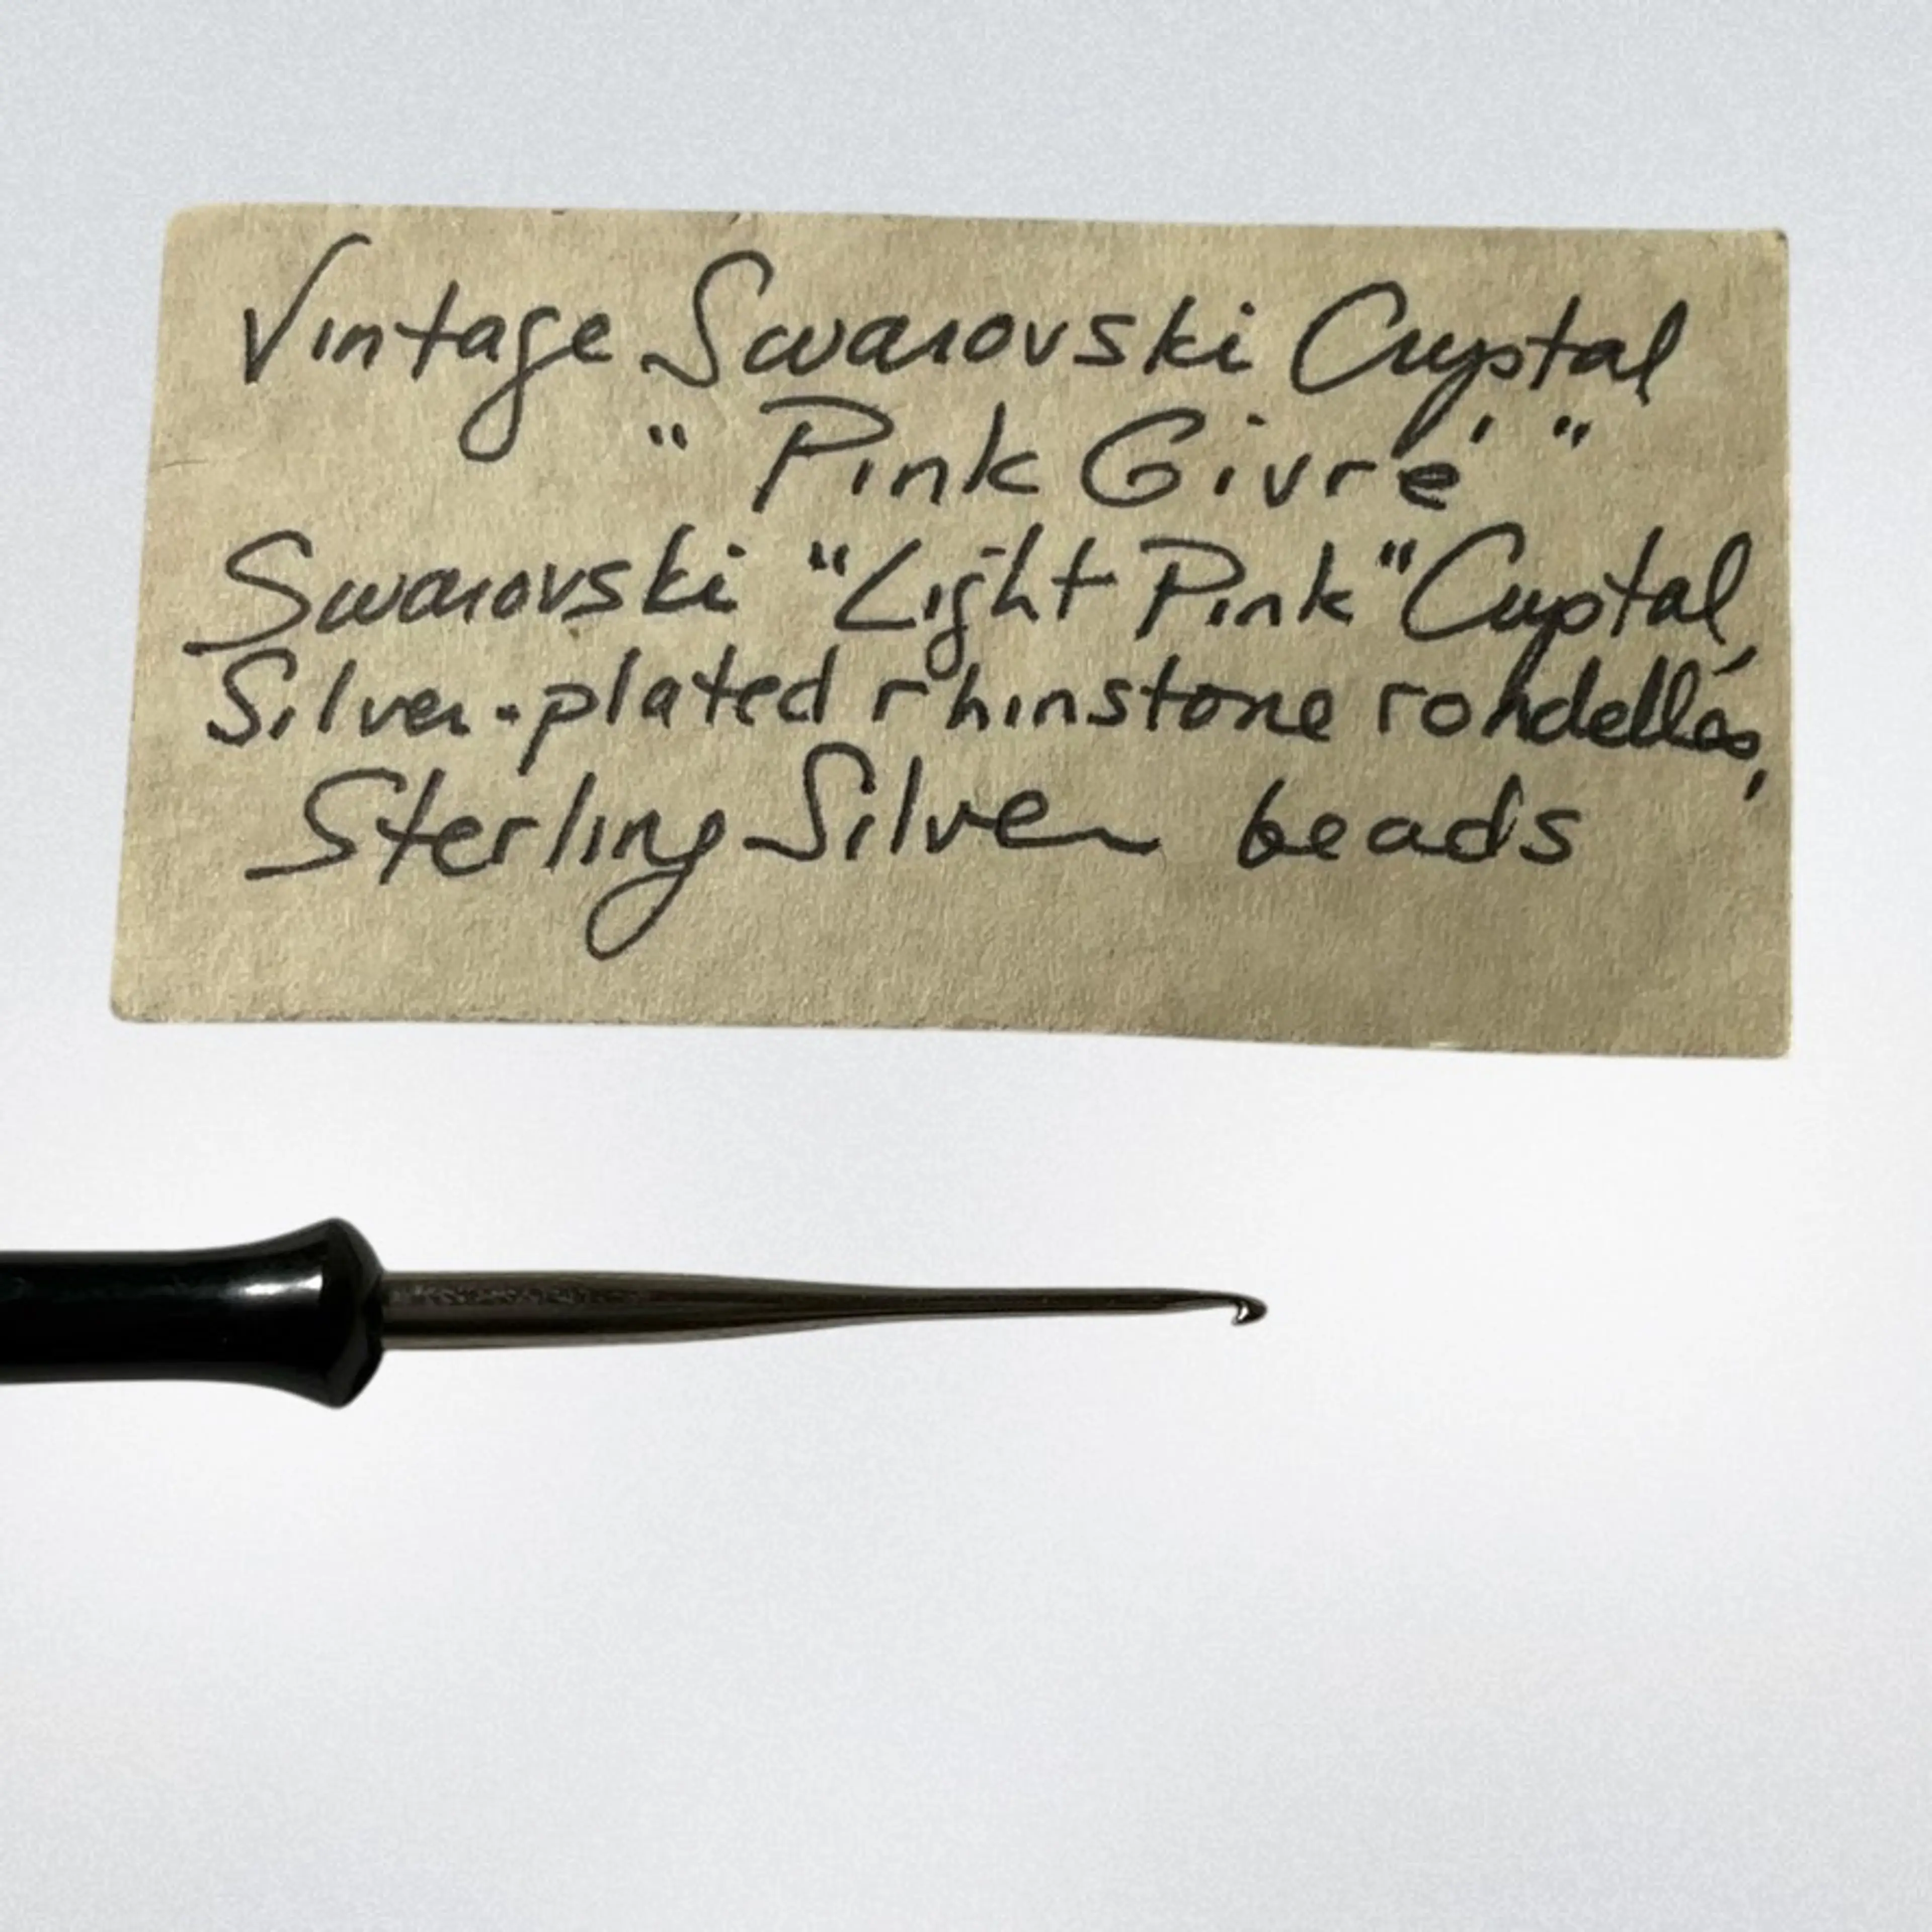 Vintage Swarovski Crystal
" Pink Givré "
Swarovski "Light Pink" Crystal,
Silver-plated rhinstone rondelles,
Sterling Silver beads